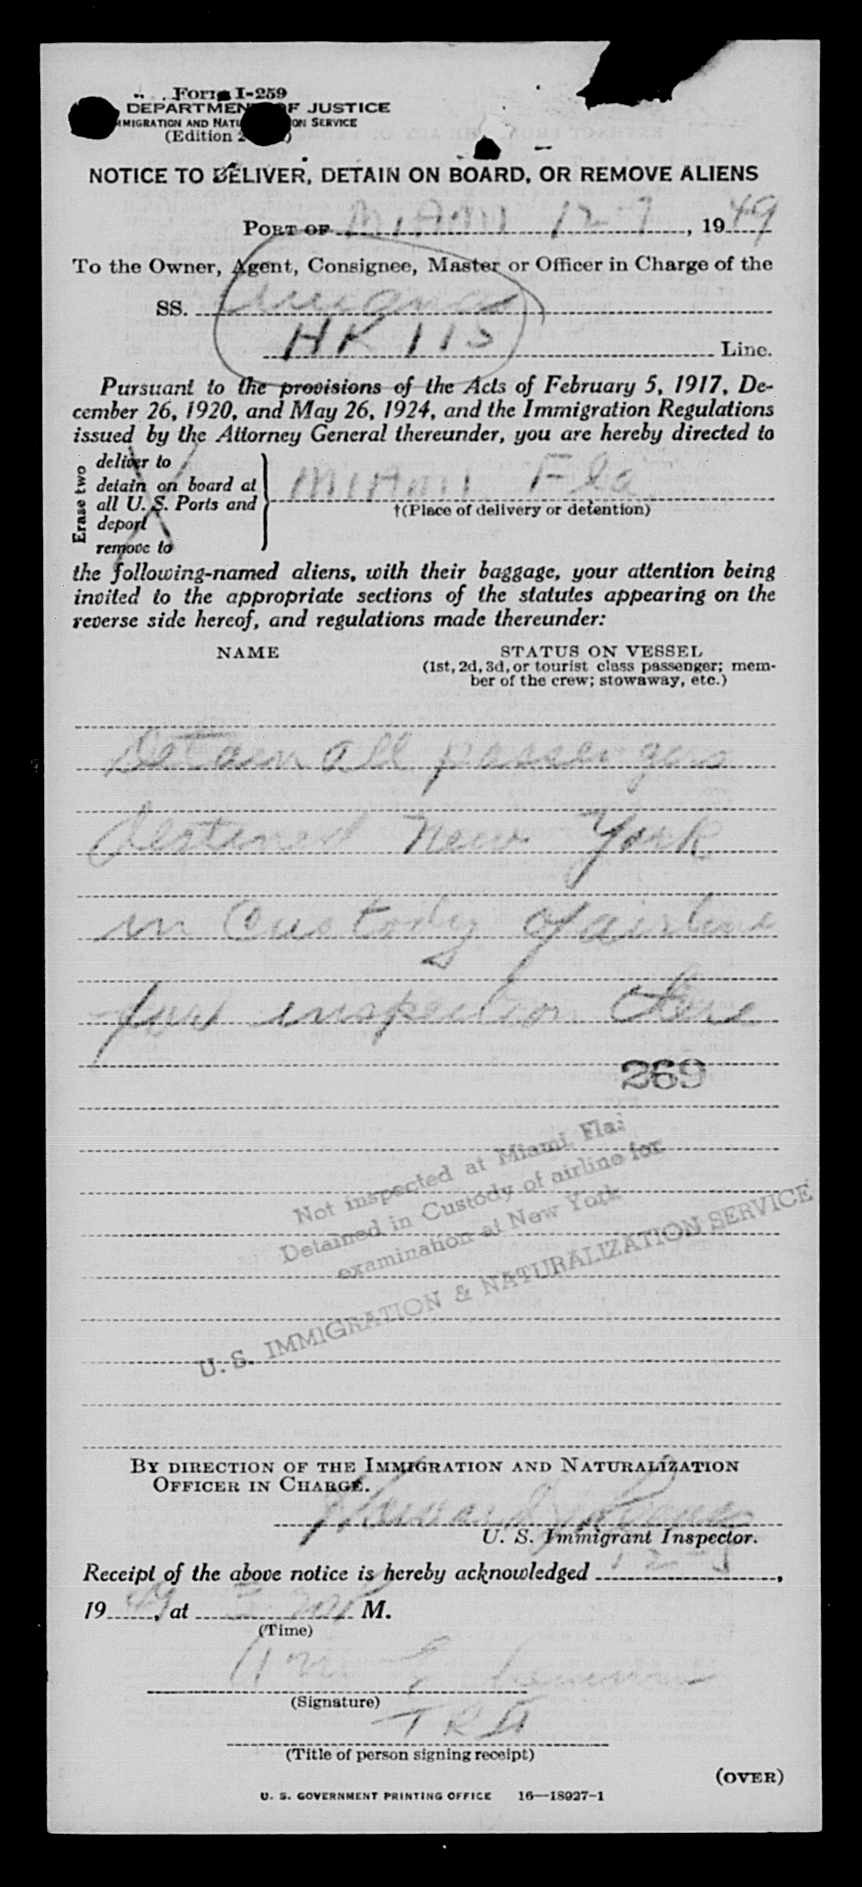 Form I-259
DEPARTMENT OF JUSTICE
IMMIGRATION AND NATURALIZATION SERVICE
(Edition
NOTICE TO DELIVER, DETAIN ON BOARD, OR REMOVE ALIENS
PORT OF MIAMI 12-7, 1949
To the Owner, Agent, Consignee, Master or Officer in Charge of the
SS.
HK 115 Line.
Pursuant to the provisions of the Acts of February 5, 1917, De-
cember 26, 1920, and May 26, 1924, and the Immigration Regulations
issued by the Attorney General thereunder, you are hereby directed to
Erase two
deliver to
detain on board at
all U. S. Ports and
deport
remove to
MIAMI Fla
†(Place of delivery or detention)
the following-named aliens, with their baggage, your attention being
invited to the appropriate sections of the statutes appearing on the
reverse side hereof, and regulations made thereunder:
NAME STATUS ON VESSEL
(1st, 2d, 3d, or tourist class passenger; mem-
ber of the crew; stowaway, etc.)
Detain all passengers
destined New York
in Custody of airline
for inspection there
269
Not inspected at Miami, Fla.
Detained in Custody of airline for
examination at New York
U. S. IMMIGRATION & NATURALIZATION SERVICE
BY DIRECTION OF THE IMMIGRATION AND NATURALIZATION
OFFICER IN CHARGE.
U. S. Immigrant Inspector.
Receipt of the above notice is hereby acknowledged
1949, at M.
(Time)
(Signature)
(Title of person signing receipt)
(OVER)
U. S. GOVERNMENT PRINTING OFFICE 16—18927-1